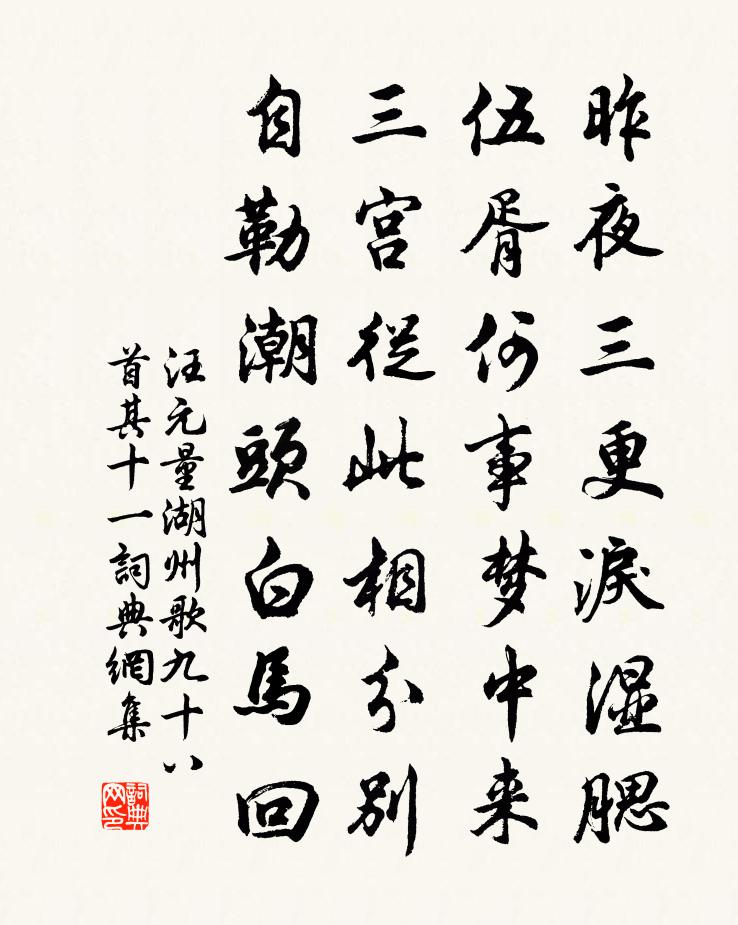 昨夜三更淚湿腮
伍胥何事梦中来
三宫從此相分别
自勒潮頭白馬回
汪元量湖州歌九十八
首其十一詞典網集
詞典
网印